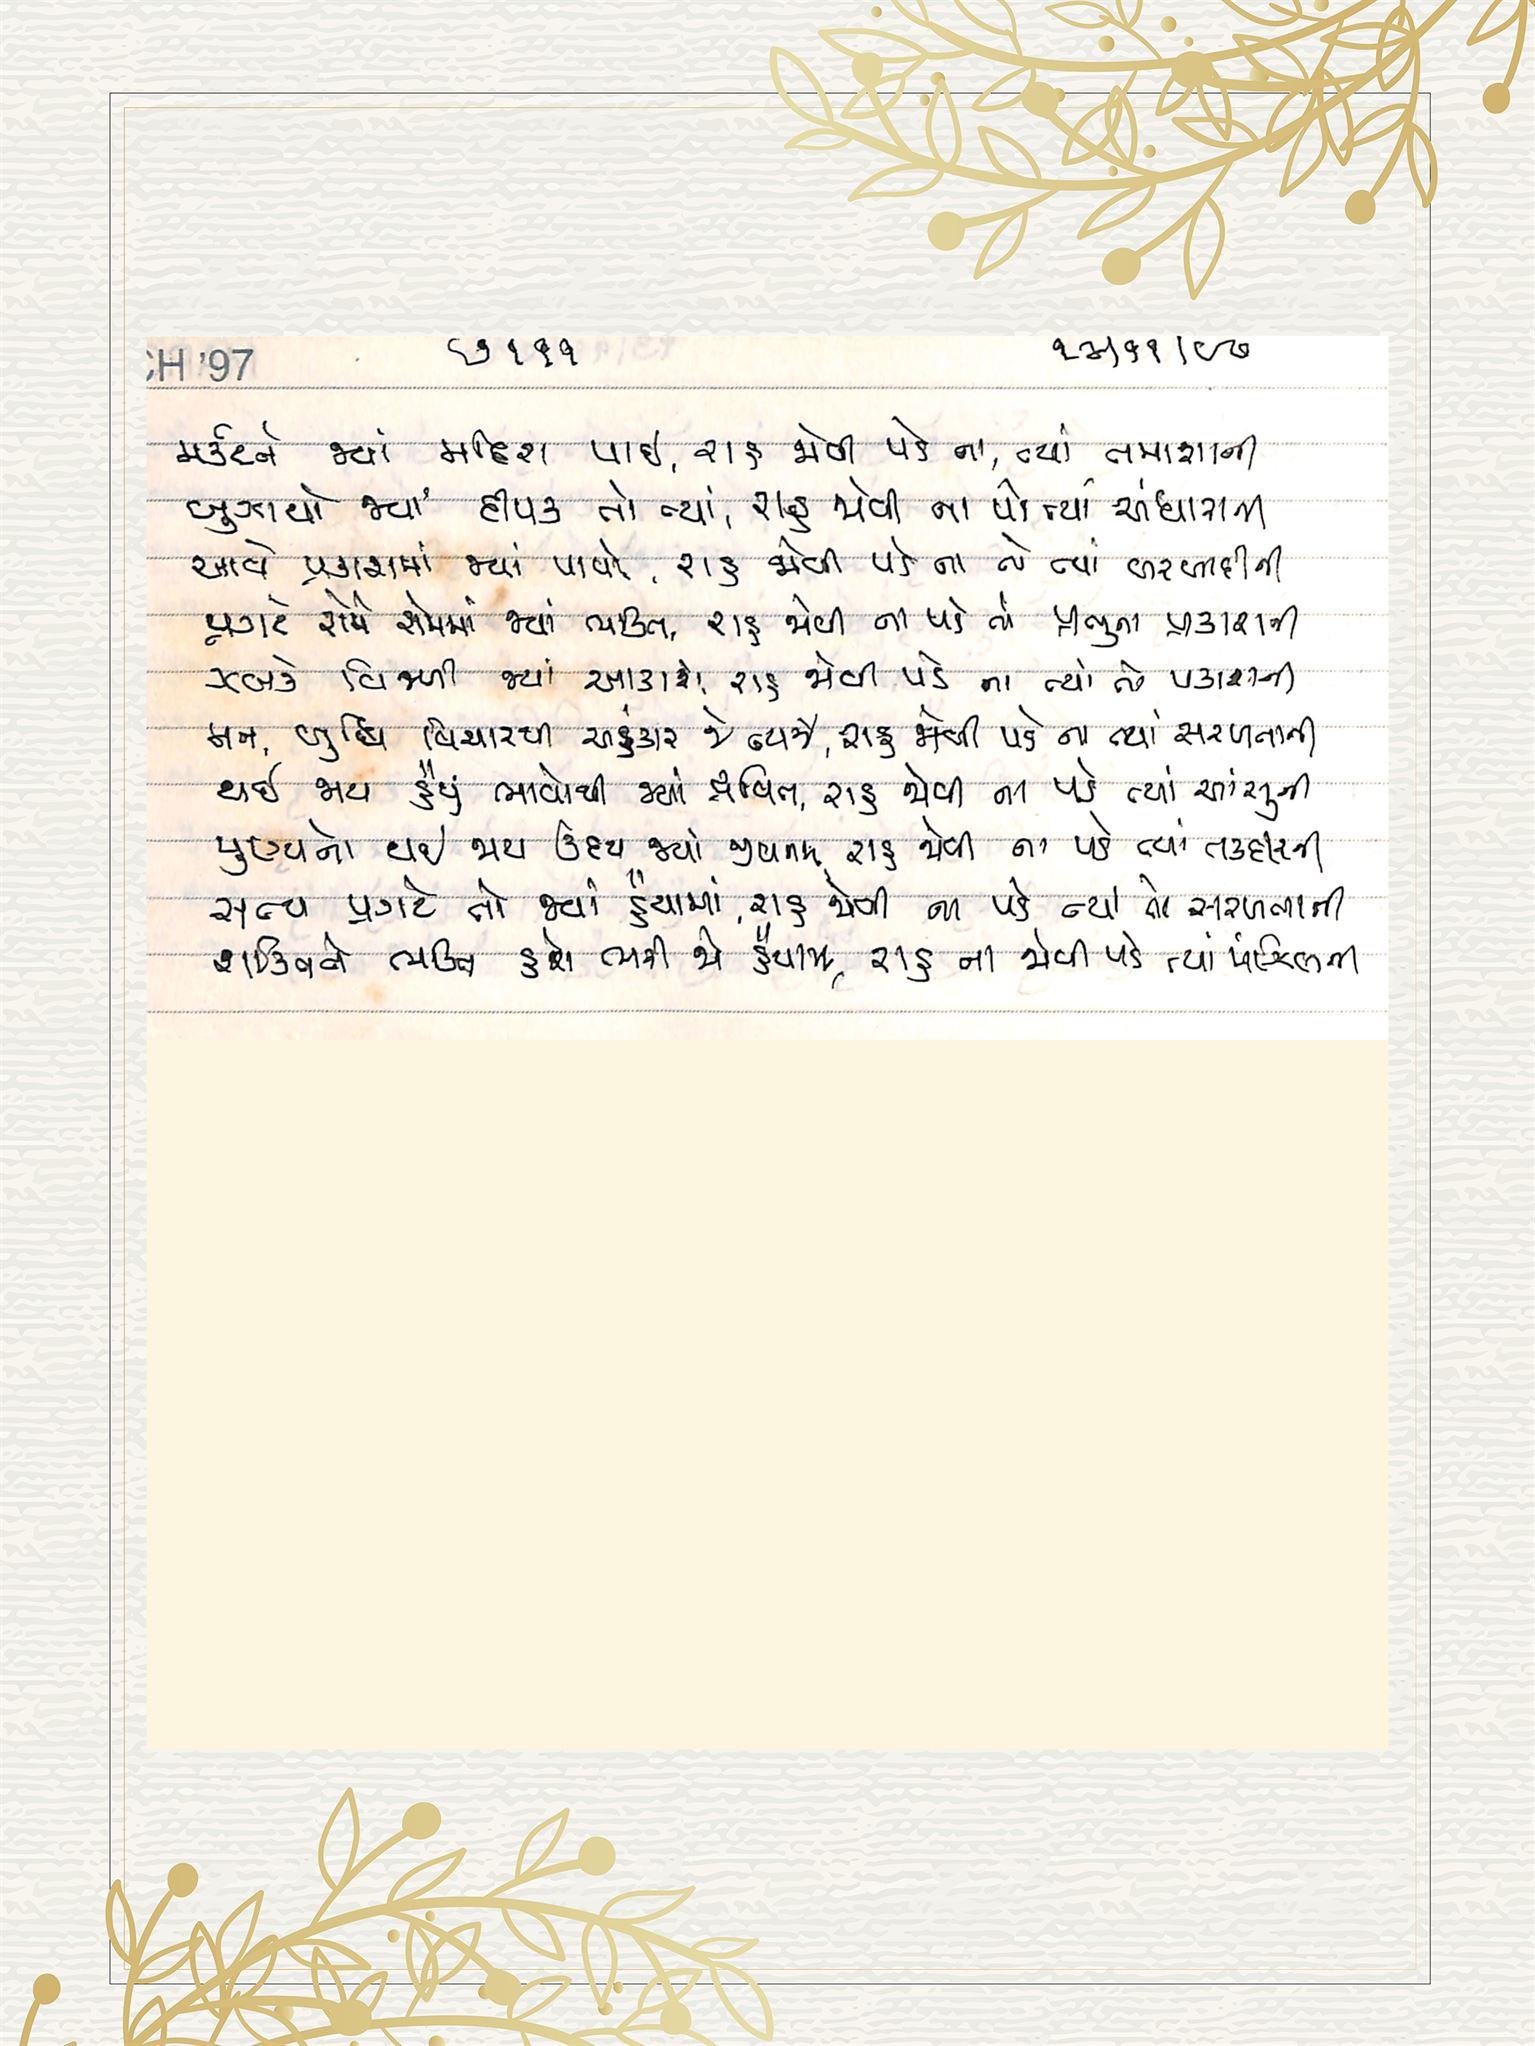 CH '97 ૭૧૧૧ ૧૩/૧૧/૯૭
મર્કટને જ્યાં મદિરા પાઇ, રાહ જોવી પડે ના, ત્યાં તમાશાની
બુઝાયો જ્યાં દીપક તો ત્યાં, રાહ જોવી ના પડે ત્યાં અંધારાની
આવે પ્રકાશમાં જ્યાં પાવો, રાહ જોવી પડે ના તો ત્યાં બરબાદીની
પ્રગટે રોમે રોમમાં જ્યાં ભક્તિ, રાહ જોવી ના પડે ત્યાં પ્રભુના પ્રકાશની
ઝબકે વિજળી જ્યાં આકાશે, રાહ જોવી પડે ના ત્યાં તો પ્રકાશની
મન, બુદ્ધિ વિચારથી અહંકાર જે ત્યજે, રાહ જોવી પડે ના ત્યાં સરળતાની
થઈ જાય હૈયું ભાવોથી જ્યાં દ્રવિત, રાહ જોવી ના પડે ત્યાં આંસુની
પુણ્યનો થઈ જાય ઉદય જ્યાં જીવનમાં, રાહ જોવી ના પડે ત્યાં તકદીરની
સત્ય પ્રગટે તો જ્યાં હૈયામાં, રાહ જોવી ના પડે ત્યાં તો સરળતાની
શક્તિને ભક્તિ હશે ભરી જો હૈયામાં, રાહ ના જોવી પડે ત્યાં મંઝિલની